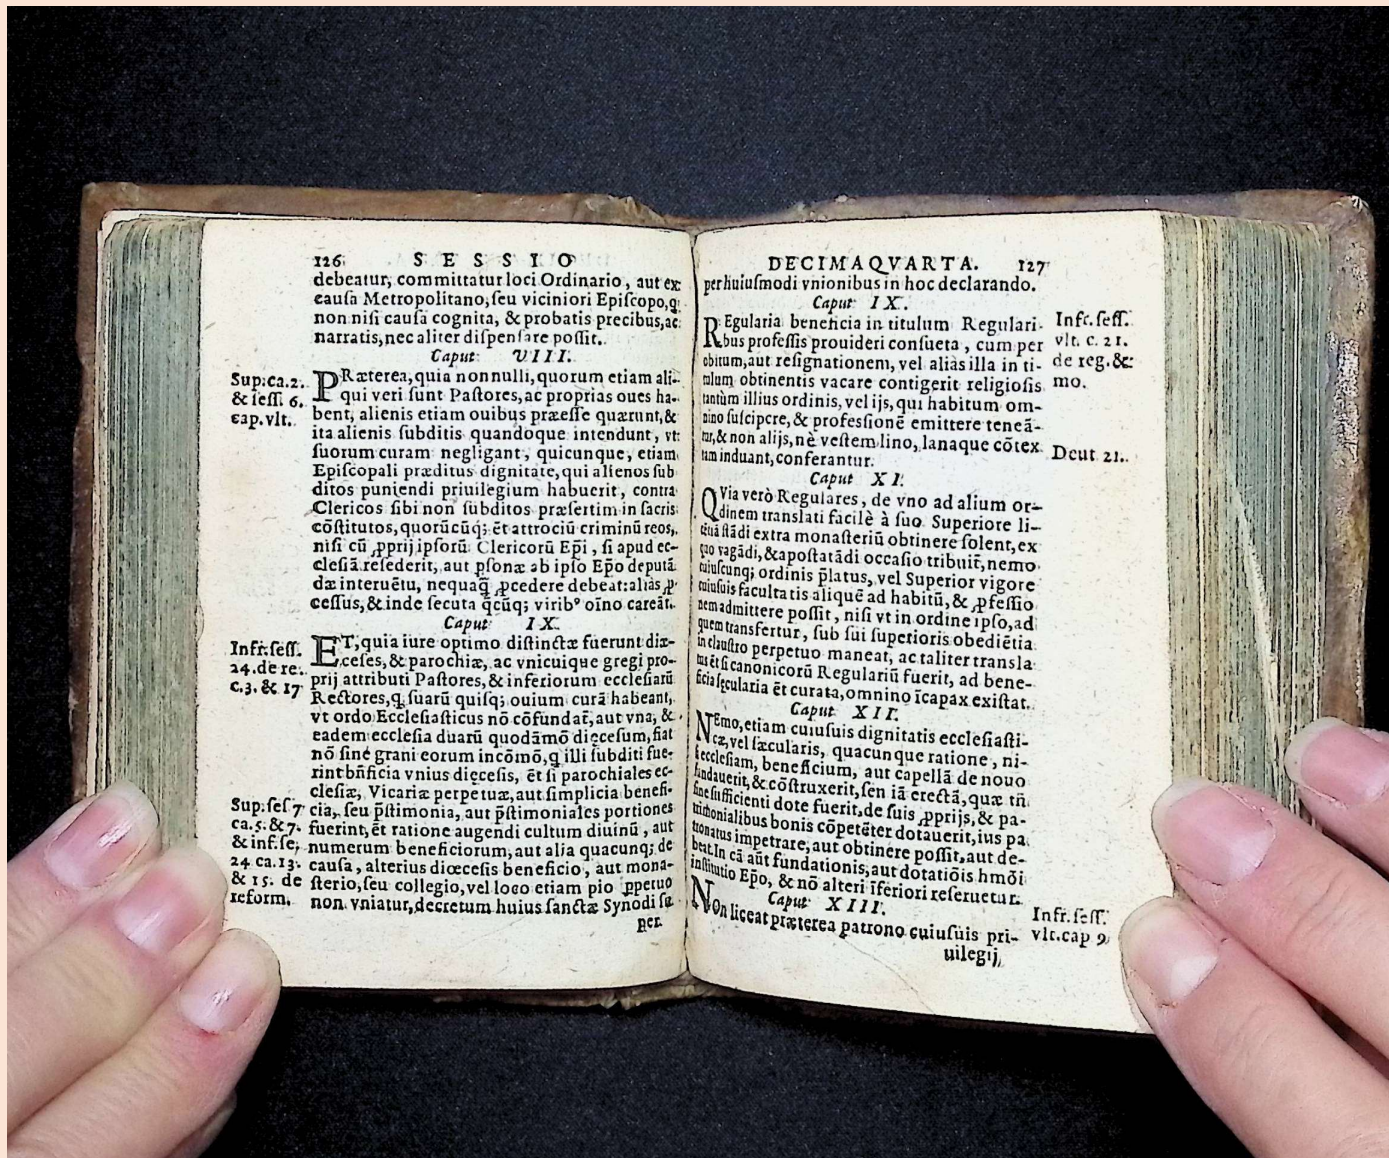 126 SESSIO
debeatur, committatur loci Ordinario, aut ex
cauſa Metropolitano, ſeu viciniori Epiſcopo, q;
non niſi cauſa cognita, & probatis precibus, ac
narratis, nec aliter diſpenſare poſſit.
Caput VIII.
Sup. ca. 2.
& ſeſſ. 6.
cap. vlt.
PRæterea, quia nonnulli, quorum etiam ali-
qui veri ſunt Paſtores, ac proprias oues ha-
bent, alienis etiam ouibus præeſſe quærunt, &
ita alienis ſubditis quandoque intendunt, vt
ſuorum curam negligant, quicunque, etiam
Epiſcopali præditus dignitate, qui alienos ſub
ditos puniendi priuilegium habuerit, contra
Clericos ſibi non ſubditos præſertim in ſacris
cōſtitutos, quorūcūq; ēt attrociū criminū reos,
niſi cū ꝓprij ipſorū Clericorū Ep̄i, ſi apud ec-
cleſiā reſederit, aut ꝑſonæ ab ipſo Ep̄o deputā
dæ interuētu, nequaq̄ ꝓcedere debeat: aliàs ꝓ
ceſſus, & inde ſecuta q̄cūq; virib⁹ oīno careāt.
Caput IX.
Infr. ſeſſ.
24. de re.
c. 3. & 17
ET, quia iure optimo diſtinctæ fuerunt diœ-
ceſes, & parochiæ, ac vnicuique gregi pro-
prij attributi Paſtores, & inferiorum eccleſiarū
Rectores, q ſuarū quiſq; ouium curā habeant,
vt ordo Eccleſiaſticus nō cōfundat̄, aut vna, &
eadem eccleſia duarū quodāmō dięceſum, fiat
nō ſine grani eorum incōmō, q illi ſubditi fue-
rint bn̄ficia vnius dięceſis, ēt ſi parochiales ec-
cleſiæ, Vicariæ perpetuæ, aut ſimplicia benefi-
Sup. ſeſ 7
ca. 5. & 7.
& inf. ſe,
24 ca. 13.
& 15. de
reform.
cia, ſeu p̄ſtimonia, aut p̄ſtimoniales portiones
fuerint, ēt ratione augendi cultum diuinū, aut
numerum beneficiorum, aut alia quacunq; de
cauſa, alterius diœceſis beneficio, aut mona-
ſterio, ſeu collegio, vel loco etiam pio ꝑpetuo
non vniatur, decretum huius ſanctæ Synodi ſu
per
DECIMAQVARTA. 127
per huiuſmodi vnionibus in hoc declarando.
Caput IX.
REgularia beneficia in titulum Regulari-
bus profeſſis prouideri conſueta, cum per
obitum, aut reſignationem, vel aliàs illa in ti-
tulum obtinentis vacare contigerit religioſis
tantùm illius ordinis, vel ijs, qui habitum om-
nino ſuſcipere, & profeſſionē emittere teneā-
tur, & non alijs, nè veſtem lino, lanaque cōtex
tam induant, conferantur.
Infr. ſeſſ.
vlt. c. 21.
de reg. &
mo.
Deut 21.
Caput XI.
QVia verò Regulares, de vno ad alium or-
dinem translati facilè à ſuo Superiore li-
cētiā ſtādi extra monaſteriū obtinere ſolent, ex
quo vagādi, & apoſtatādi occaſio tribuit̄, nemo
cuiuſcunq; ordinis p̄latus, vel Superior vigore
cuiuſuis facultatis aliquē ad habitū, & ꝓfeſſio
nem admittere poſſit, niſi vt in ordine ipſo, ad
quem transfertur, ſub ſui ſuperioris obediētia
in clauſtro perpetuo maneat, ac taliter transla
tus ēt ſi canonicorū Regulariū fuerit, ad bene-
ficia ſęcularia ēt curata, omnino īcapax exiſtat.
Caput XII.
NEmo, etiam cuiuſuis dignitatis eccleſiaſti-
cæ, vel ſæcularis, quacunque ratione, ni-
ſi eccleſiam, beneficium, aut capellā de nouo
fundauerit, & cōſtruxerit, ſeu iā erectā, quæ tn̄
ſine ſufficienti dote fuerit, de ſuis ꝓprijs, & pa-
trimonialibus bonis cōpetēter dotauerit, ius pa
tronatus impetrare, aut obtinere poſſit, aut de-
beat. In cā aūt fundationis, aut dotatiōis hmōi
inſtitutio Ep̄o, & nō alteri īferiori reſeruetur.
Caput XIII.
NOn liceat præterea patrono cuiuſuis pri-
uilegij,
Infr. ſeſſ.
vlt. cap 9